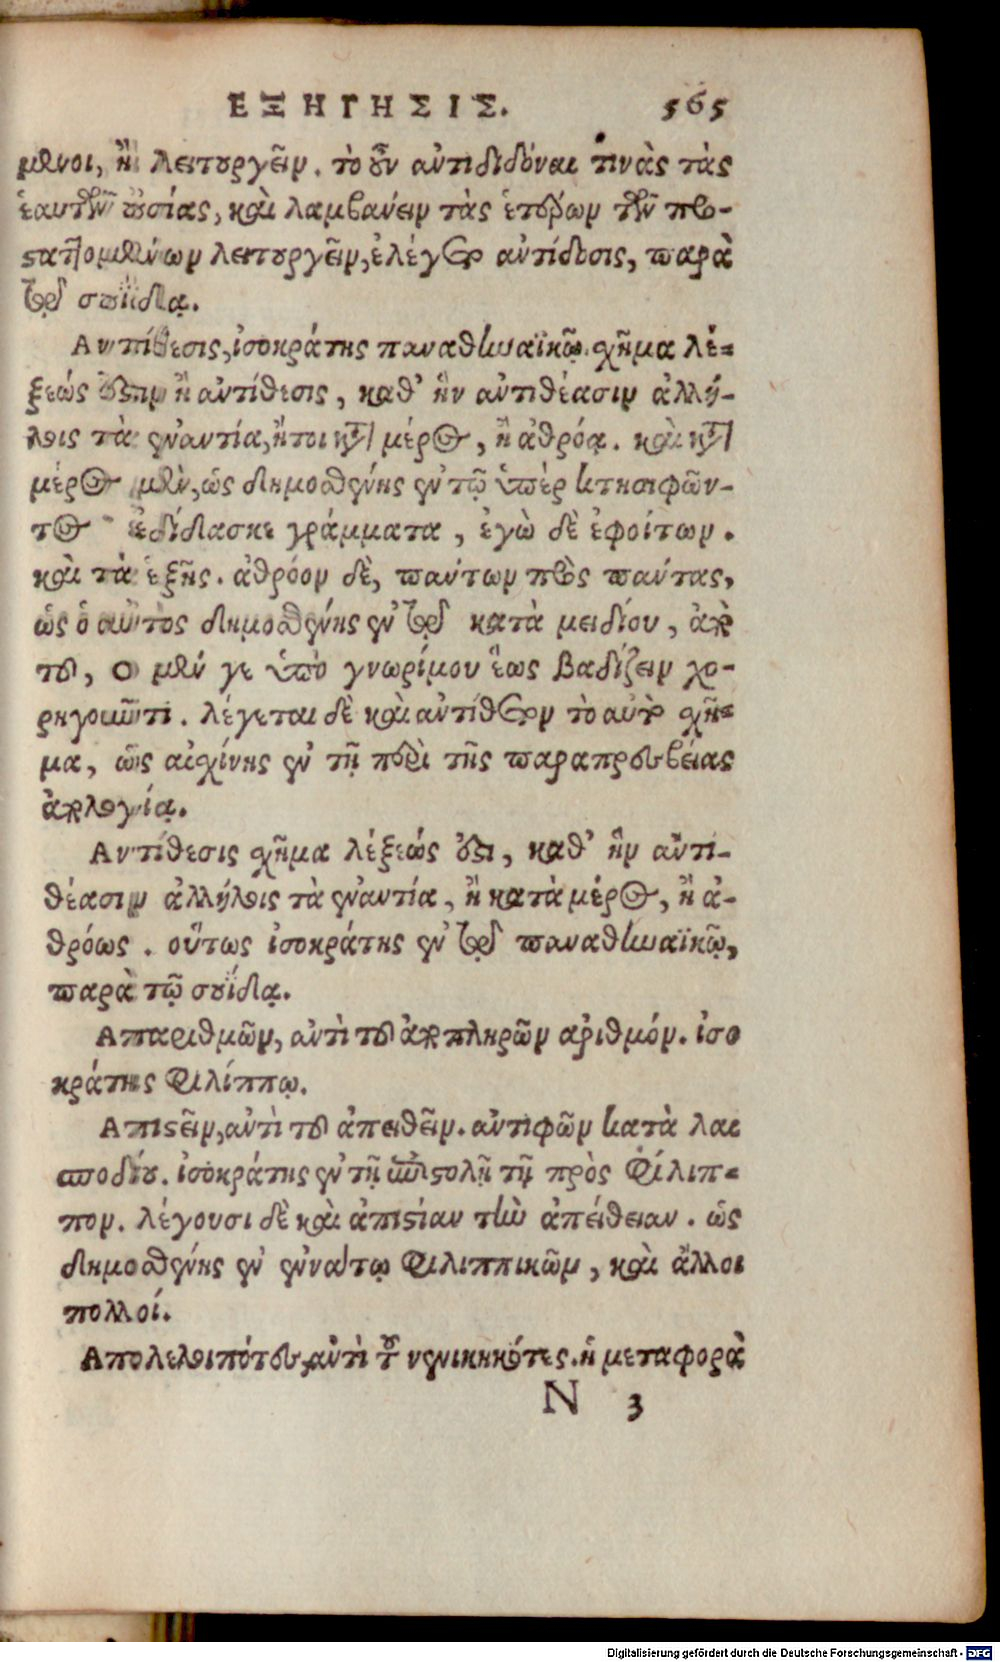 ΕΞΗΓΗΣΙΣ. 565
μενοι, ἢ λειτουργεῖν. τὸ οὖν ἀντιδιδόναι τινὰς τὰς
ἑαυτῶν οὐσίας, καὶ λαμβάνειν τὰς ἑτέρων τῶν προ-
σταττομένων λειτουργεῖν, ἐλέγετο ἀντίδοσις, παρὰ
τῷ σουΐδᾳ.
Αντίθεσις, ἰσοκράτης παναθηναϊκῷ. σχῆμα λέ-
ξεώς ἐστιν ἡ ἀντίθεσις, καθ' ἣν ἀντιθέασιν ἀλλή-
λοις τὰ ἐναντία, ἤτοι κατὰ μέρος, ἢ ἀθρόα. καὶ κατὰ
μέρος μὲν, ὡς δημοσθένης ἐν τῷ ὑπὲρ κτησιφῶν-
τος ἐδίδασκε γράμματα, ἐγὼ δὲ ἐφοίτων.
καὶ τὰ ἑξῆς. ἀθρόον δὲ, πάντων πρὸς πάντας,
ὡς ὁ αὐτὸς δημοσθένης ἐν τῷ κατὰ μειδίου, ἀπὸ
τοῦ, Ο μέν γε ὑπὸ γνωρίμου ἕως βαδίζειν χο-
ρηγοῦντι. λέγεται δὲ καὶ ἀντίθετον τὸ αὐτὸ σχῆ-
μα, ὡς αἰσχίνης ἐν τῇ περὶ τῆς παραπρεσβείας
ἀπολογίᾳ.
Αντίθεσις σχῆμα λέξεώς ἐστι, καθ' ἣν ἀντι-
θέασιν ἀλλήλοις τὰ ἐναντία, ἢ κατὰ μέρος, ἢ ἀ-
θρόως. οὕτως ἰσοκράτης ἐν τῷ παναθηναϊκῷ,
παρὰ τῷ σουΐδᾳ.
Απαριθμῶν, ἀντὶ τοῦ ἀποπληρῶν ἀριθμόν. ἰσο
κράτης Φιλίππῳ.
Απιστεῖν, ἀντὶ τοῦ ἀπειθεῖν. ἀντιφῶν κατὰ λαι
σποδίου. ἰσοκράτης ἐν τῇ ἐπιστολῇ τῇ πρὸς Φίλιπ-
πον. λέγουσι δὲ καὶ ἀπιστίαν τὴν ἀπείθειαν. ὡς
δημοσθένης ἐν ἐνάτῳ Φιλιππικῶν, καὶ ἄλλοι
πολλοί.
Απολελοιπότες, ἀντὶ τοῦ νενικηκότες. ἡ μεταφορὰ
N 3
Digitalisierung gefördert durch die Deutsche Forschungsgemeinschaft - DFG